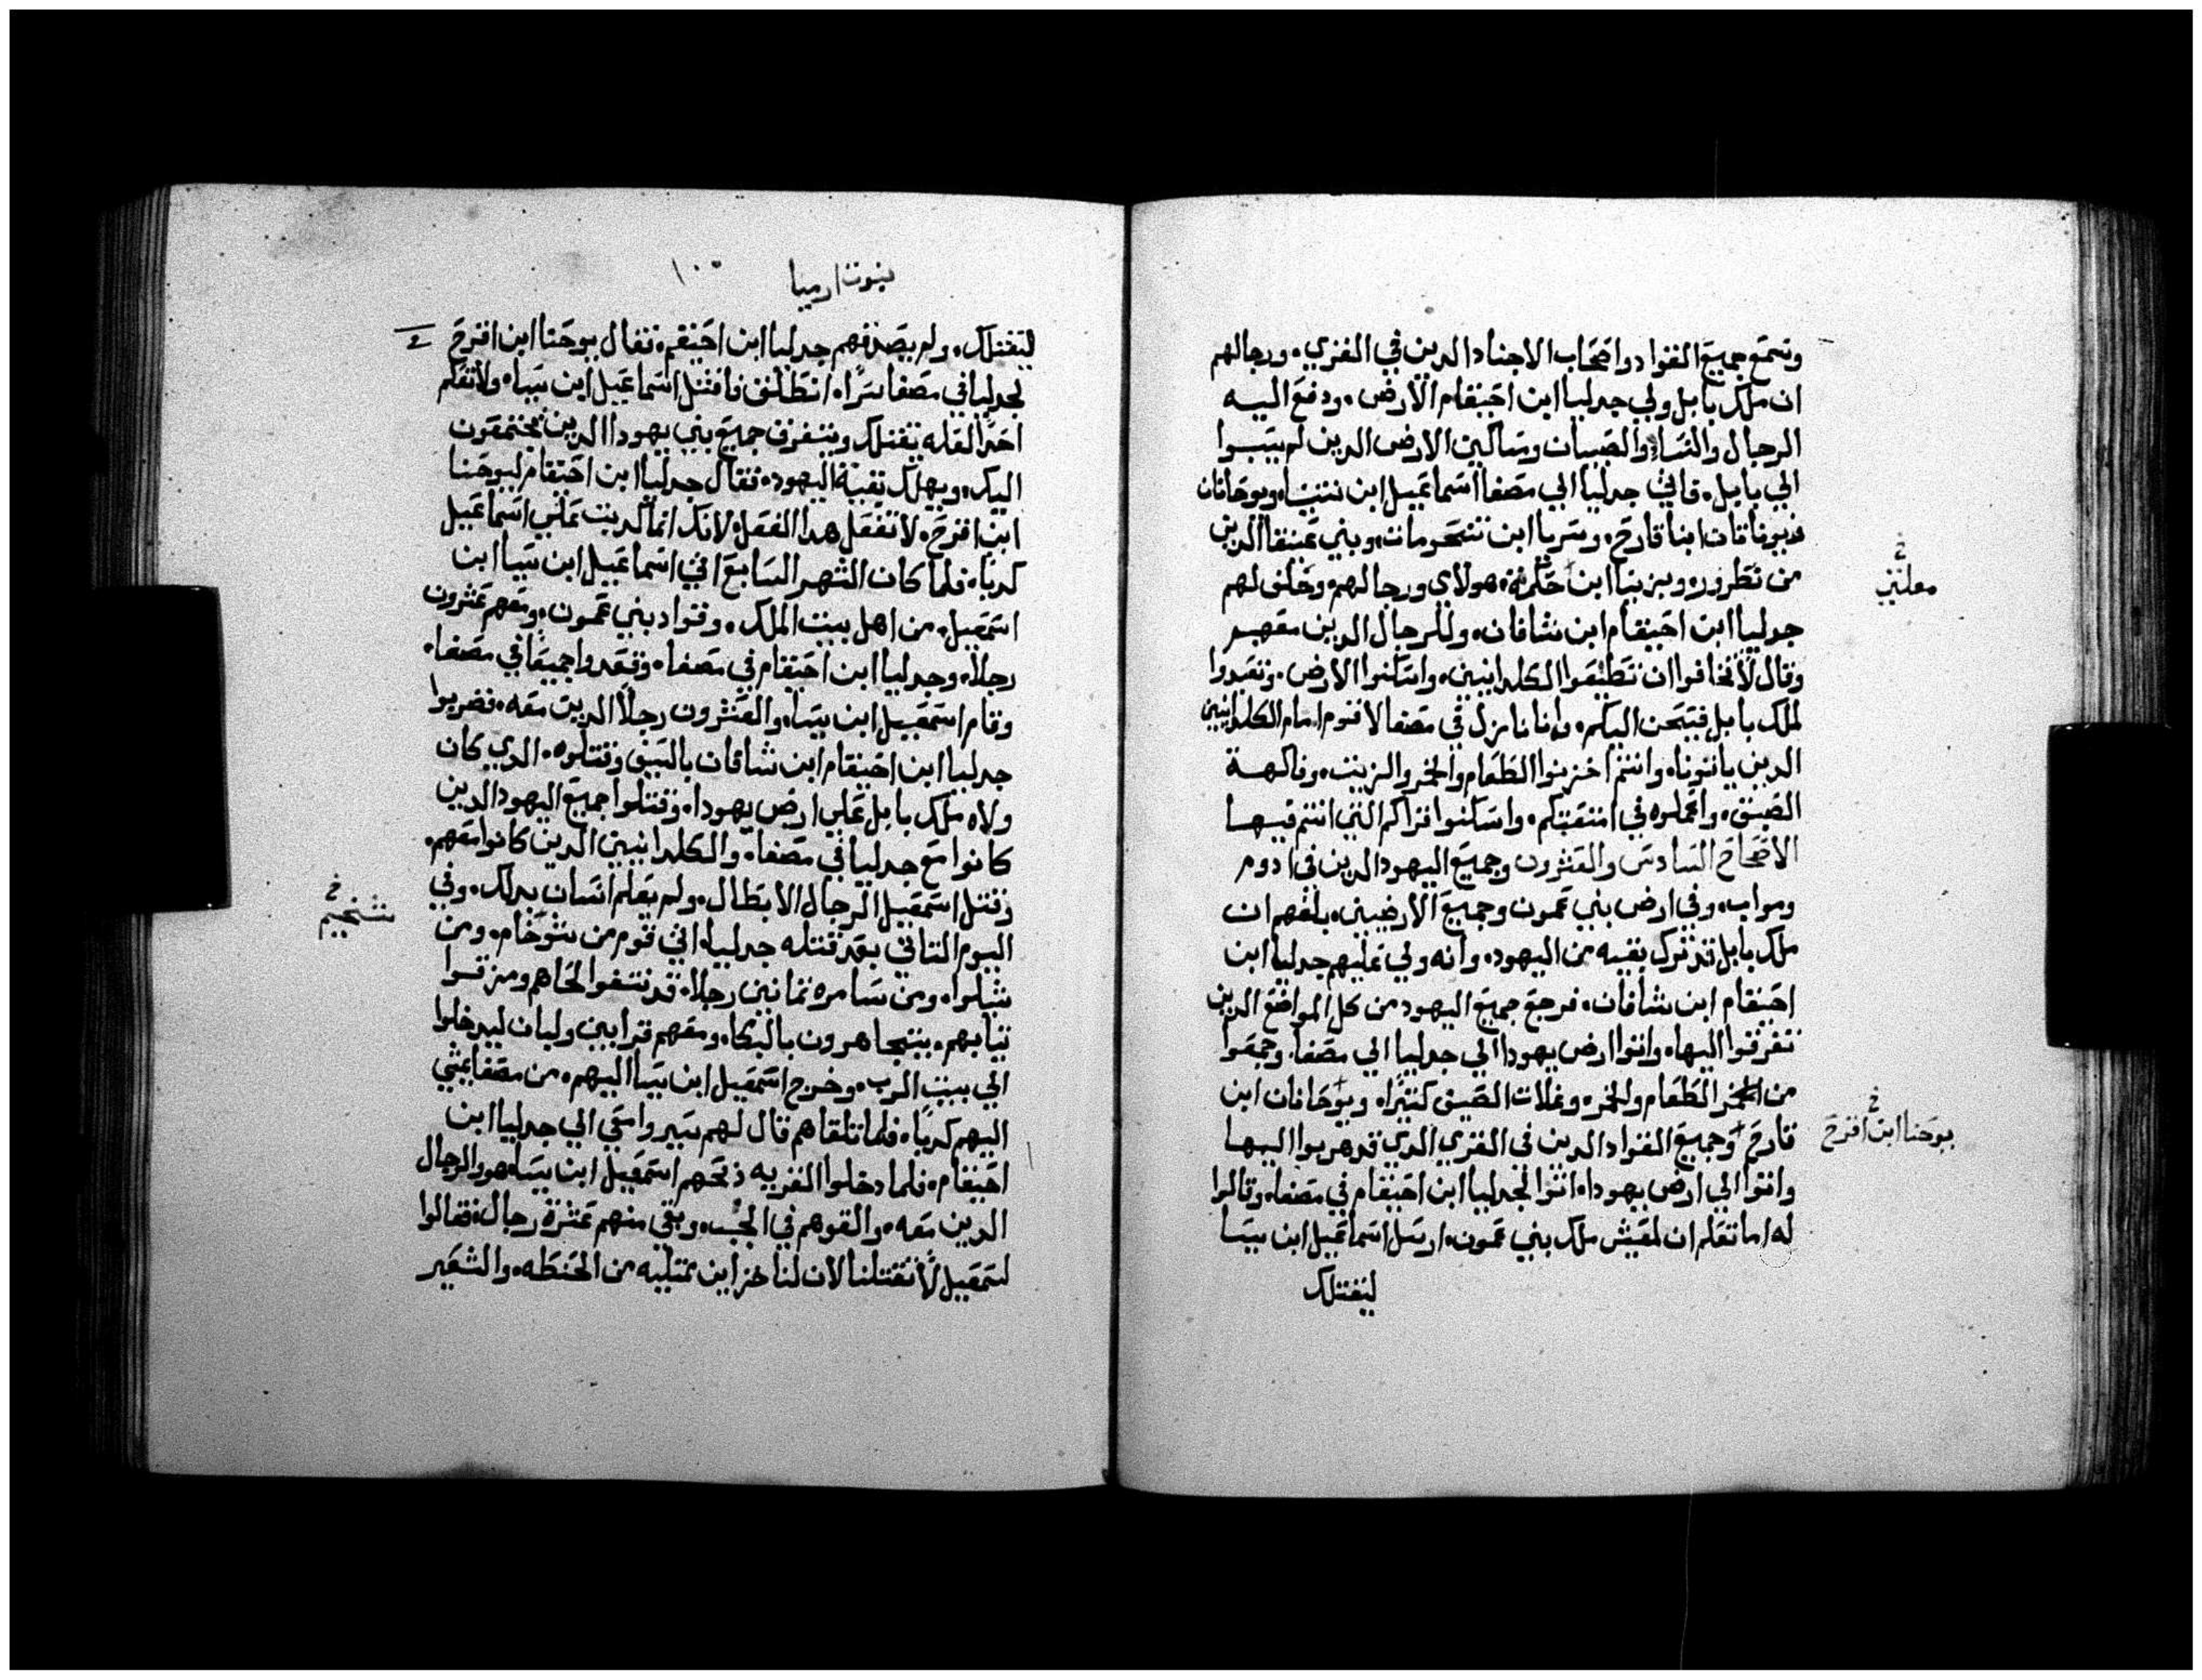 وسمع جميع القواد واصحاب الاجناد الدين في القري. ورجالهم
ان ملك بابل ولي جدليا ابن احيقام الارض. ودفع اليه
الرجال والنساء والصبيان ومساكين الارض الدين لم يسبوا
الي بابل. فاتي جدليا الي مصفا اسماعيل ابن نتنيا. ويوحانان
ويوناتان ابنا قارح. وسريا ابن تنحومات. وبني عينقا الدين
من نطرور. ويزنيا ابن هولاي ورجالهم. وحلف لهم
جدليا ابن احيقام ابن شافان. وللرجال الدين معهم
وقال لا تخافوا ان تطيعوا الكلدانيين. واسكنوا الارض. وتعبدوا
لملك بابل فيحسن اليكم. وانا نازل في مصفا لاقوم امام الكلدانيين
الدين ياتونا. وانتم اخزنوا الطعام والخمر والزيت. وفاكهة
الصيف. واعملوه في امتعتكم. واسكنوا قراكم التي انتم فيها
الاصحاح السادس والعشرون وجميع اليهود الدين في ادوم
ومواب. وفي ارض بني عمون وجميع الارضيين. بلغهم ان
ملك بابل قد ترك بقيه من اليهود. وانه ولي عليهم جدليا ابن
احيقام ابن شافان. فرجع جميع اليهود من كل المواضع الدين
تفرقوا اليها. واتوا ارض يهودا الي جدليا الي مصفا. وجمعوا
من الطعام والخمر. وغلات الصيف كتيرا. ويوحانان ابن
قارح وجميع القواد الدين في القري الدي قد هربوا اليها
واتوا الي ارض يهودا. اتوا لجدليا ابن احيقام في مصفا. وقالوا
له اما تعلم ان لمعيش ملك بني عمون. ارسل اسماعيل ابن بيسا
ليقتلك
معلنين
يوحنا ابن اقرح
نبوت ارميا
ليقتلك. ولم يصدقهم جدليا ابن احيقم. فقال يوحنا ابن اقرح
لجدليا في مصفا سرا. انطلق فاقتل اسماعيل ابن بيسا. ولا تعلم
احدا لعله يقتلك ويتفرق جميع بني يهودا الدين يجتمعون
اليك. ويهلك بقية اليهود. فقال جدليا ابن احيقام ليوحنا
ابن اقرح. لا تفعل هدا الفعل. لانك انما كدبت علي اسماعيل
كدبا. فلما كان الشهر السابع اتي اسماعيل ابن بيسا ابن
اسمعيل. من اهل بيت الملك. وقواد بني عمون. ومعهم عشرون
رجلا. وجدليا ابن احيقام في مصفا. وقعدوا جميعا في مصفا.
وقام اسمعيل ابن بيسا. والعشرون رجلا الدين معه. فضربوا
جدليا ابن احيقام ابن شافان بالسيف وقتلوه. الدي كان
ولاه ملك بابل علي ارض يهودا. وقتلوا جميع اليهود الدين
كانوا مع جدليا في مصفا. والكلدانيين الدين كانوا معهم.
وقتل اسمعيل الرجال الابطال. ولم يعلم انسان بدلك. وفي
اليوم التاني بعد قتله جدليا. اتي قوم من شوخام. ومن
شيلوا. ومن سامره تمانين رجلا. قد نتفوا لحاهم ومزقوا
تيابهم. يتجاهرون بالبكا. ومعهم قرابين ولبان ليدخلوا
الي بيت الرب. وخرج اسمعيل ابن بيسا اليهم. من مصفا يمشي
اليهم كدبا. فلما تلقاهم قال لهم سيروا معي الي جدليا ابن
احيقام. فلما دخلوا القريه ذبحهم اسمعيل ابن بيسا. هو والرجال
الدين معه. والقوهم في الجب. وبقي منهم عشرة رجال. فقالوا
لسمعيل لا تقتلنا لان لنا خزاين ممتليه من الحنطه. والشعير
شخيم